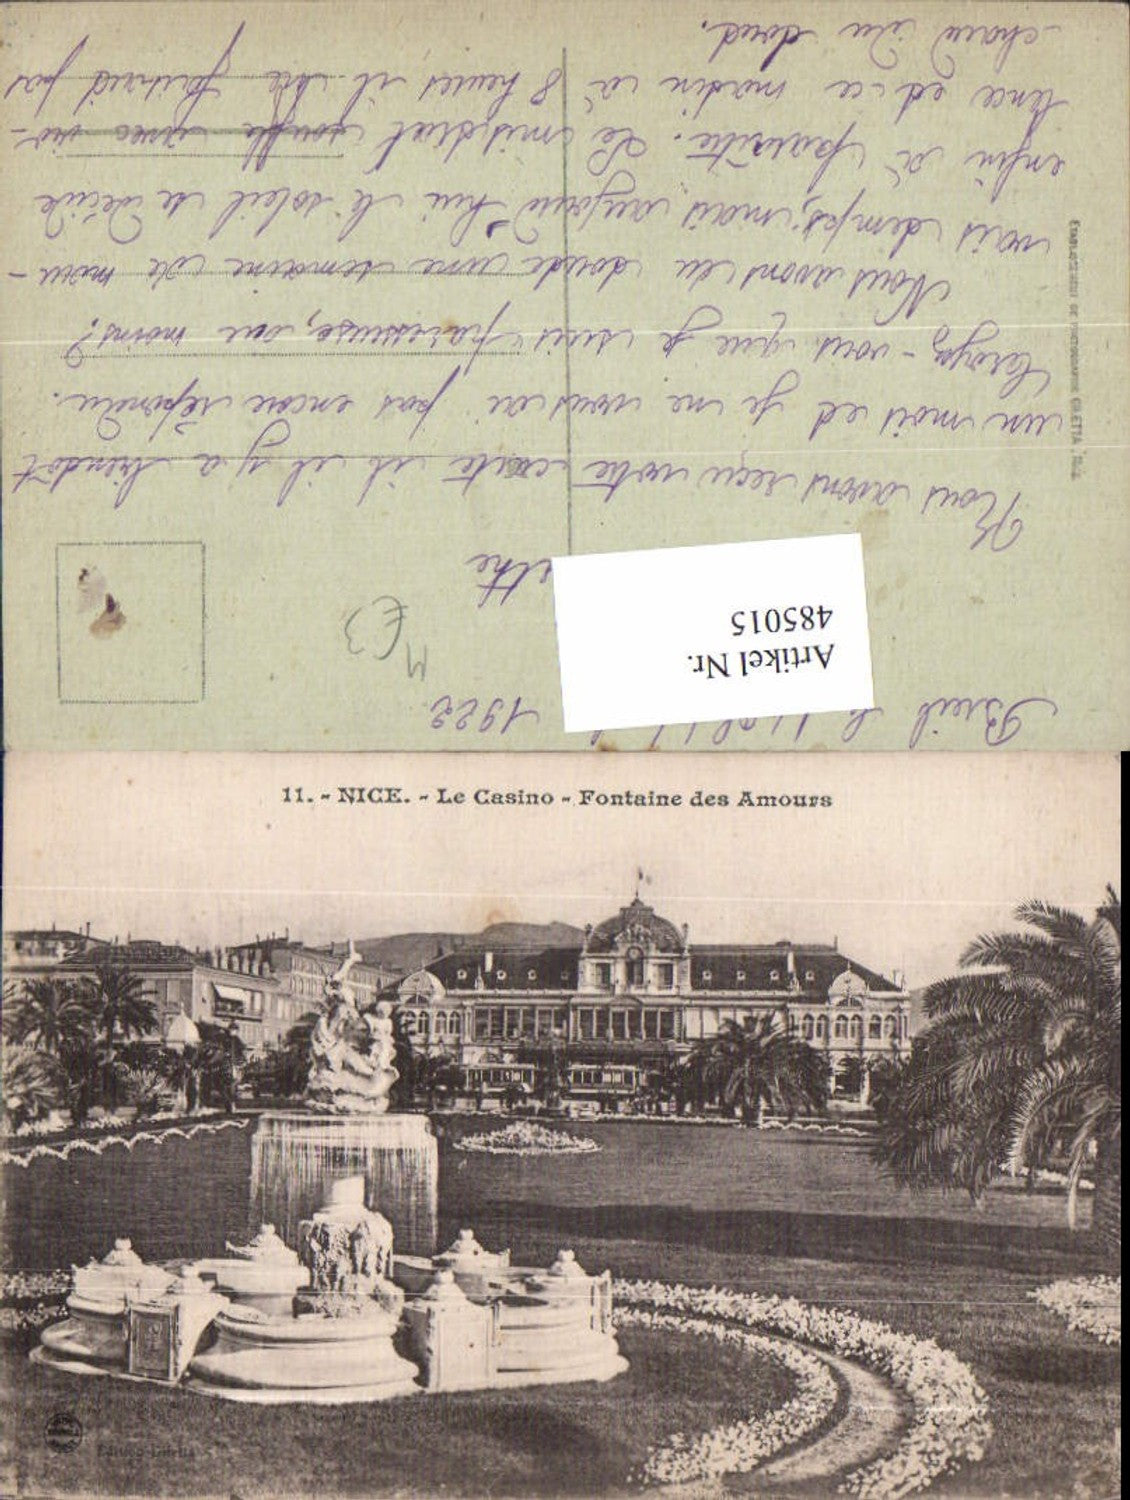 Breil le 1922
Nous avons reçu votre carte il il y a bientôt
un mois et je ne vous ai pas encore répondu.
Croyez-vous que je suis paresseuse, au moins?
Nous avons eu toute une semaine de mau-
vais temps; mais aujourd'hui le soleil se décide
enfin à paraître. Le mistral souffle avec vio-
lence et ce matin à 8 heures il ne faisait pas
chaud du tout.
M
€3
Artikel Nr.
485015
ETABLISSEMENT DE PHOTOGRAPHIE GILETTA, Nice
11. - NICE. - Le Casino - Fontaine des Amours
Edition Giletta